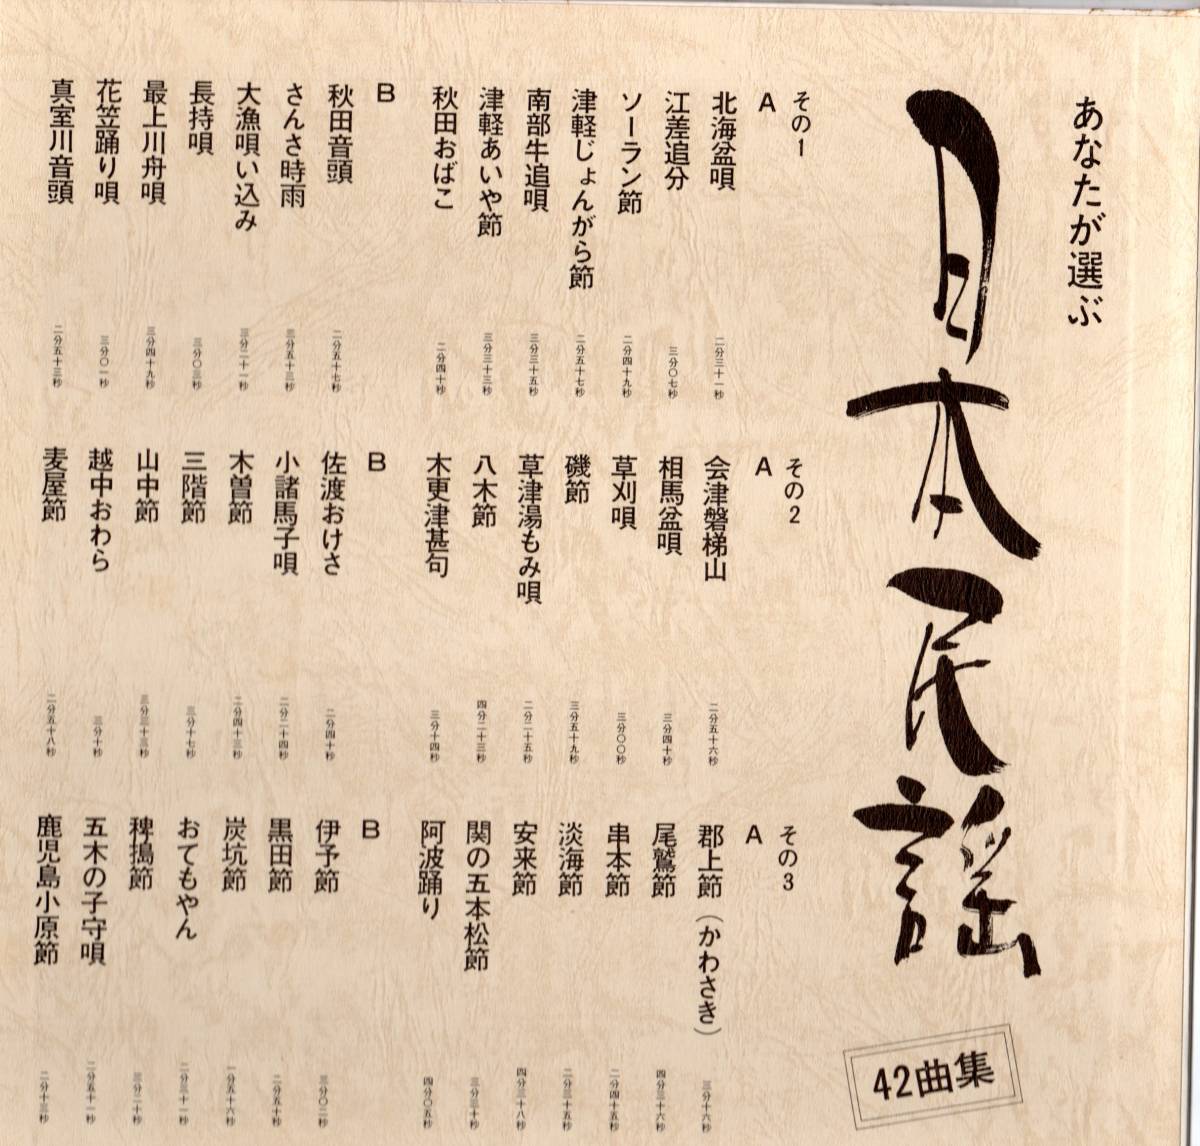 あなたが選ぶ
日本民謡
42曲集
その1
A
北海盆唄 二分三十一秒
江差追分 三分〇七秒
ソーラン節 二分四十九秒
津軽じょんがら節 二分五十七秒
南部牛追唄 三分三十五秒
津軽あいや節 三分三十三秒
秋田おばこ 二分四十秒
B
秋田音頭 二分五十七秒
さんさ時雨 三分五十三秒
大漁唄い込み 三分二十一秒
長持唄 三分〇三秒
最上川舟唄 三分四十九秒
花笠踊り唄 三分〇一秒
真室川音頭 二分五十三秒
その2
A
会津磐梯山 二分五十六秒
相馬盆唄 三分四十秒
草刈唄 三分〇〇秒
磯節 三分五十九秒
草津湯もみ唄 二分二十五秒
八木節 四分二十三秒
木更津甚句 三分十四秒
B
佐渡おけさ 二分四十秒
小諸馬子唄 二分二十四秒
木曽節 二分四十三秒
三階節 三分十七秒
山中節 三分三十三秒
越中おわら 三分十秒
麦屋節 二分五十八秒
その3
A
郡上節(かわさき) 三分十六秒
尾鷲節 四分三十六秒
串本節 二分四十五秒
淡海節 二分三十五秒
安来節 四分三十八秒
関の五本松節 三分三十秒
阿波踊り 四分〇五秒
B
伊予節 三分〇二秒
黒田節 二分五十秒
炭坑節 一分五十六秒
おてもやん 二分三十一秒
稗搗節 三分二十秒
五木の子守唄 二分五十一秒
鹿児島小原節 二分十三秒